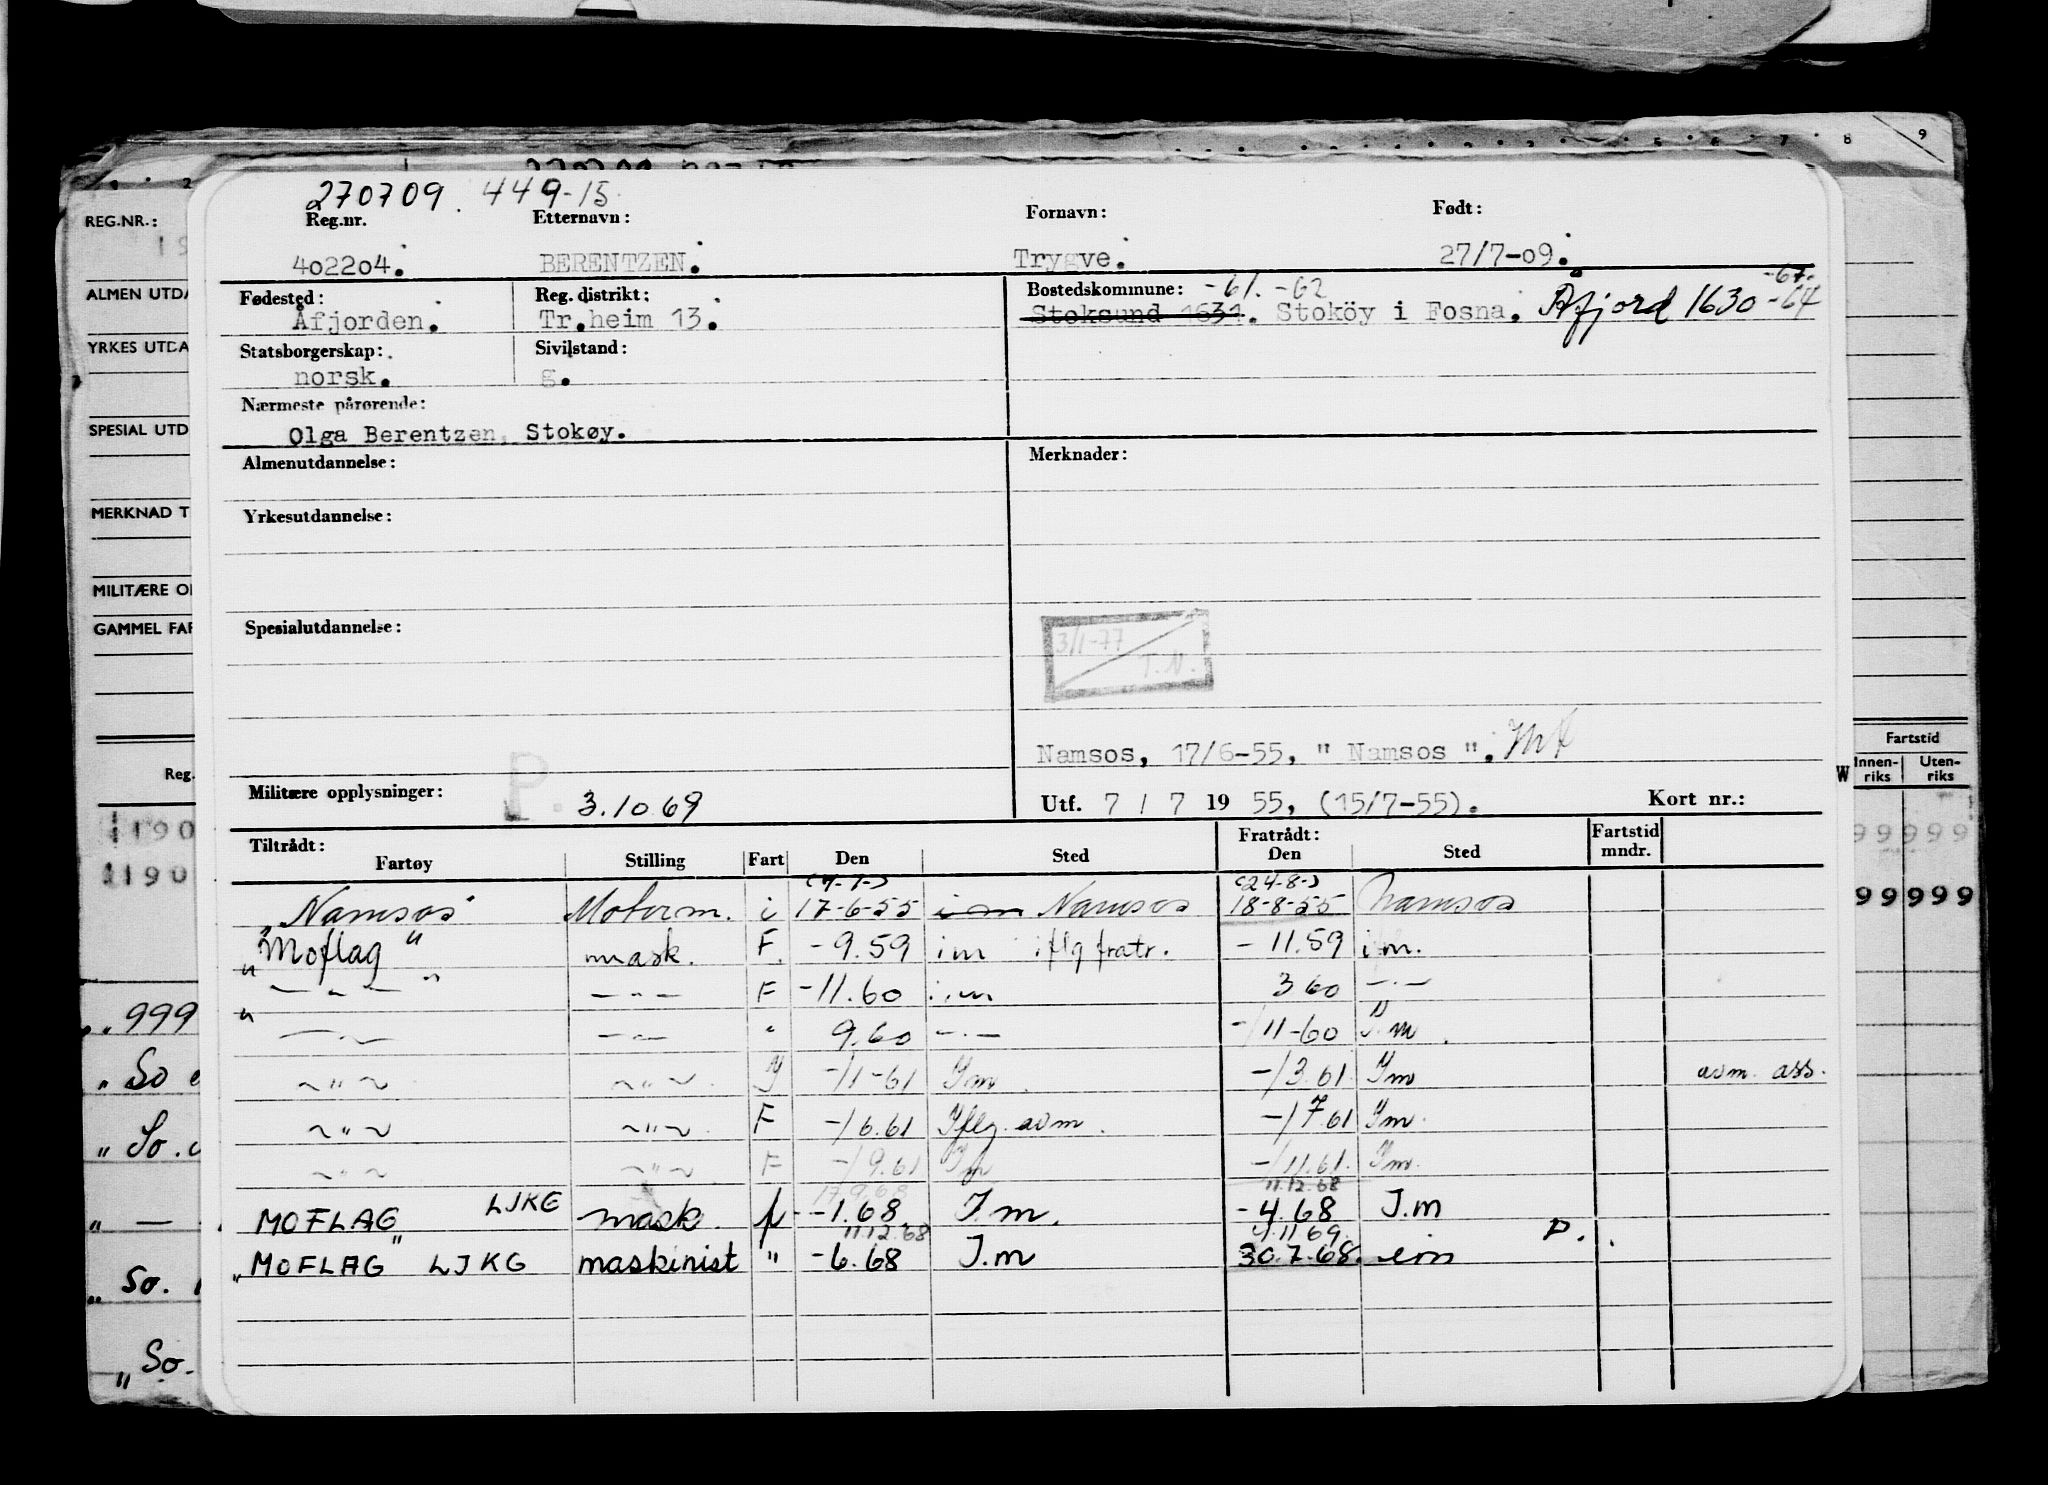 270709 449-15
Reg.nr. Etternavn: Fornavn: Født:
402204. BERENTZEN. Trygve. 27/7-09.
Fødested: Reg. distrikt: Bostedskommune: -61. -62 -67.
Åfjorden. Tr.heim 13. Stoksund 1631. Stoköy i Fosna. Åfjord 1630 -64
Statsborgerskap: Sivilstand:
norsk. g.
Nærmeste pårørende:
Olga Berentzen, Stokøy.
Almenutdannelse: Merknader:
Yrkesutdannelse:
Spesialutdannelse:
3/1-77
T.N.
Namsos, 17/6-55, " Namsos ".
Militære opplysninger: P. 3.10 69 Utf. 7 / 7 19 55, (15/7-55). Kort nr.:
Tiltrådt: Fratrådt: Fartstid
Fartøy Stilling Fart Den Sted Den Sted mndr.
(7-7-) (24-8-)
"Namsos" Motorm. i 17-6-55 im Namsos 18-8-55 Namsos
"Moflag" mask. F. -9.59 im iflg fratr. -11.59 im.
" — " — " — " — F -11.60 i.m 3 60 — " —
" — " — — " — " 9.60 — " — -/11-60 I.m.
~ " ~ ~ " ~ -/1-61 Im -/3.61 Im avm. ass.
~ " ~ ~ " ~ F -/6.61 Iflg. avm. -/7 61 Im.
~ " ~ ~ " ~ F -/9.61 Im -/11.61. Im.
17.9.68 11.12.68
MOFLAG LJKG mask. -1.68 I.m. -4.68 I.m
11.12.68 4.11 69. P.
"MOFLAG" LJKG maskinist " -6.68 I.m 30.7.68.
REG.NR.:
ALMEN UTDA
YRKES UTDA
SPESIAL UTD
MERKNAD T
MILITÆRE O
GAMMEL FAR
Reg.
1190
1190
999
" So
" So.
" —
" So.
" So.
5 6 7 8 9
Fartstid
W Innen-riks Uten-riks
99 999
99 999